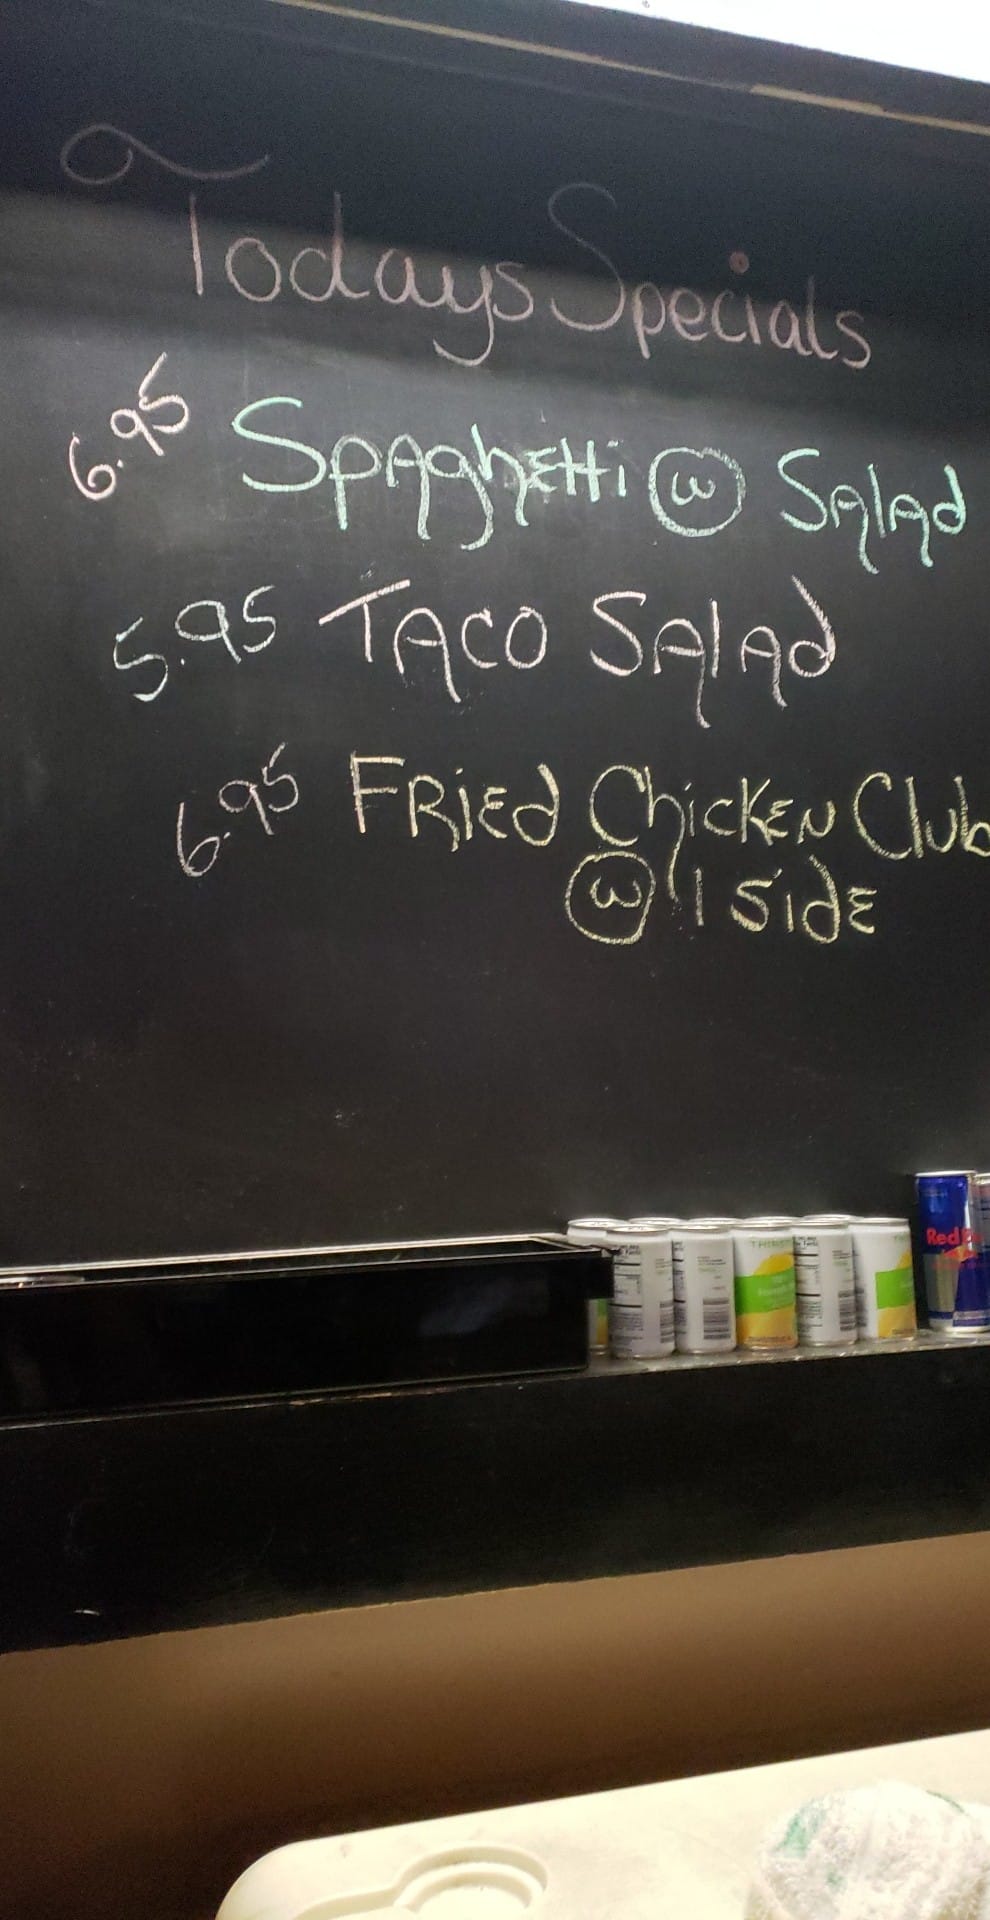 Todays Specials
6.95 Spaghetti w Salad
5.95 Taco Salad
6.95 Fried Chicken Club
w 1 side
Red